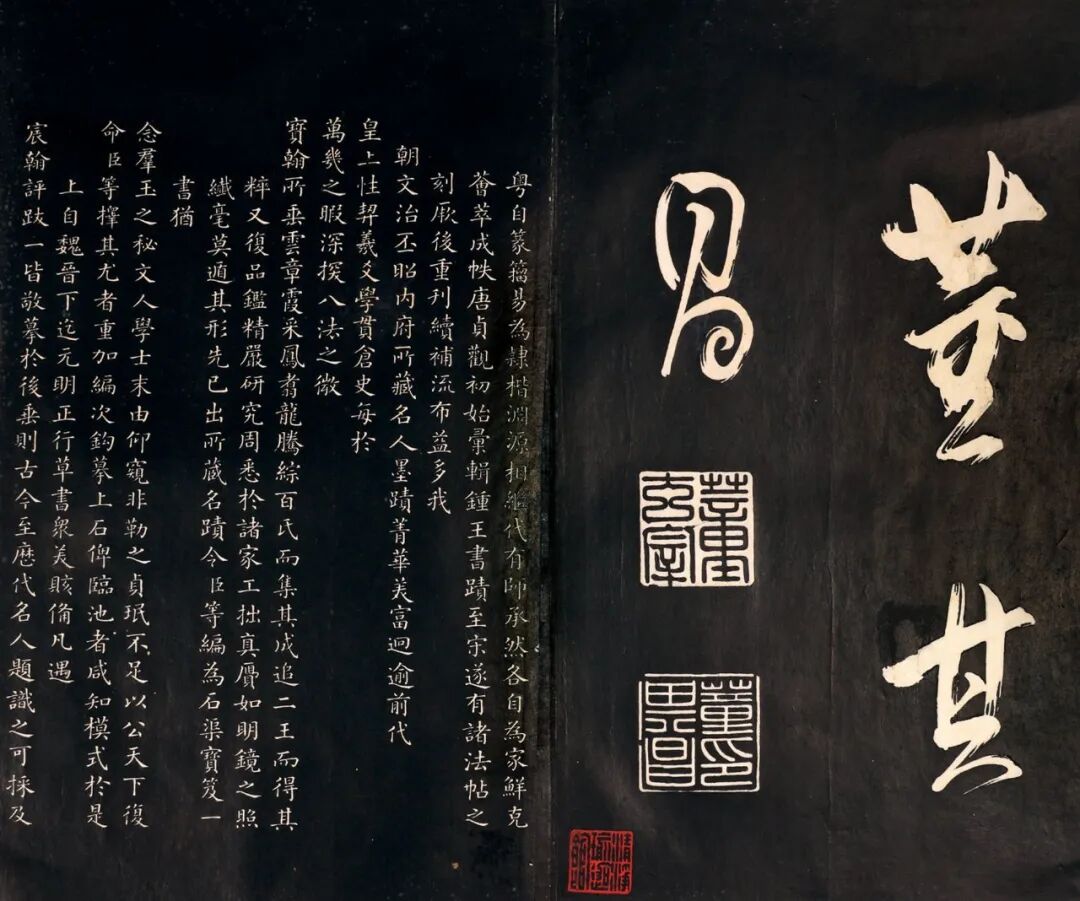 董其
昌
董其昌印
粵自篆籀易為隸楷淵源相繼代有師承然各自為家鮮克
薈萃成帙唐貞觀初始彙輯鍾王書蹟至宋遂有諸法帖之
刻厥後重刊續補流布益多我
朝文治丕昭內府所藏名人墨蹟菁華美富迥逾前代
皇上性契羲爻學貫倉史每於
萬幾之暇深探八法之微
寶翰所垂雲章霞采鳳翥龍騰綜百氏而集其成追二王而得其
粹又復品鑑精嚴研究周悉於諸家工拙真贋如明鏡之照
纖毫莫遁其形先已出所藏名蹟今臣等編為石渠寶笈一
書猶
念羣玉之秘文人學士末由仰窺非勒之貞珉不足以公天下復
命臣等擇其尤者重加編次鈎摹上石俾臨池者咸知模式於是
上自魏晉下迄元明正行草書衆美賅備凡遇
宸翰評跋一皆敬摹於後垂則古今至歷代名人題識之可採及